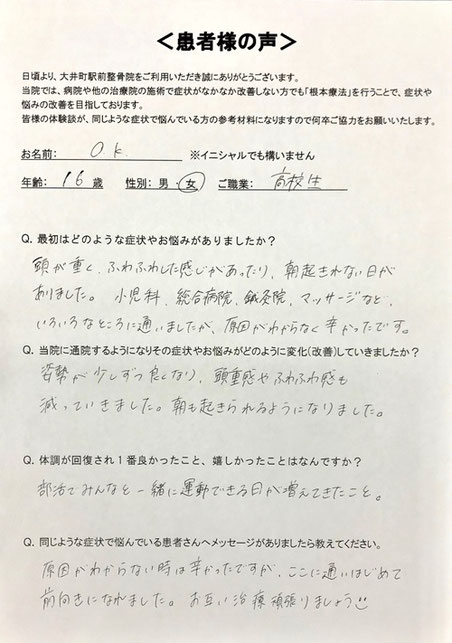 ＜患者様の声＞
日頃より、大井町駅前整骨院をご利用いただき誠にありがとうございます。
当院では、病院や他の治療院の施術で症状がなかなか改善しない方でも「根本療法」を行うことで、症状や
悩みの改善を目指しております。
皆様の体験談が、同じような症状で悩んでいる方の参考材料になりますので何卒ご協力をお願いいたします。
お名前： O.K ※イニシャルでも構いません
年齢： 16 歳 性別：男・女 ご職業： 高校生
Q. 最初はどのような症状やお悩みがありましたか？
頭が重く、ふわふわした感じがあったり、朝起きれない日が
ありました。小児科、総合病院、鍼灸院、マッサージなど、
いろいろなところに通いましたが、原因がわからなく辛かったです。
Q. 当院に通院するようになりその症状やお悩みがどのように変化(改善)していきましたか？
姿勢が少しずつ良くなり、頭重感やふわふわ感も
減っていきました。朝も起きられるようになりました。
Q. 体調が回復され１番良かったこと、嬉しかったことはなんですか？
部活でみんなと一緒に運動できる日が増えてきたこと。
Q. 同じような症状で悩んでいる患者さんへメッセージがありましたら教えてください。
原因がわからない時は辛かったですが、ここに通いはじめて
前向きになれました。お互い治療頑張りましょう